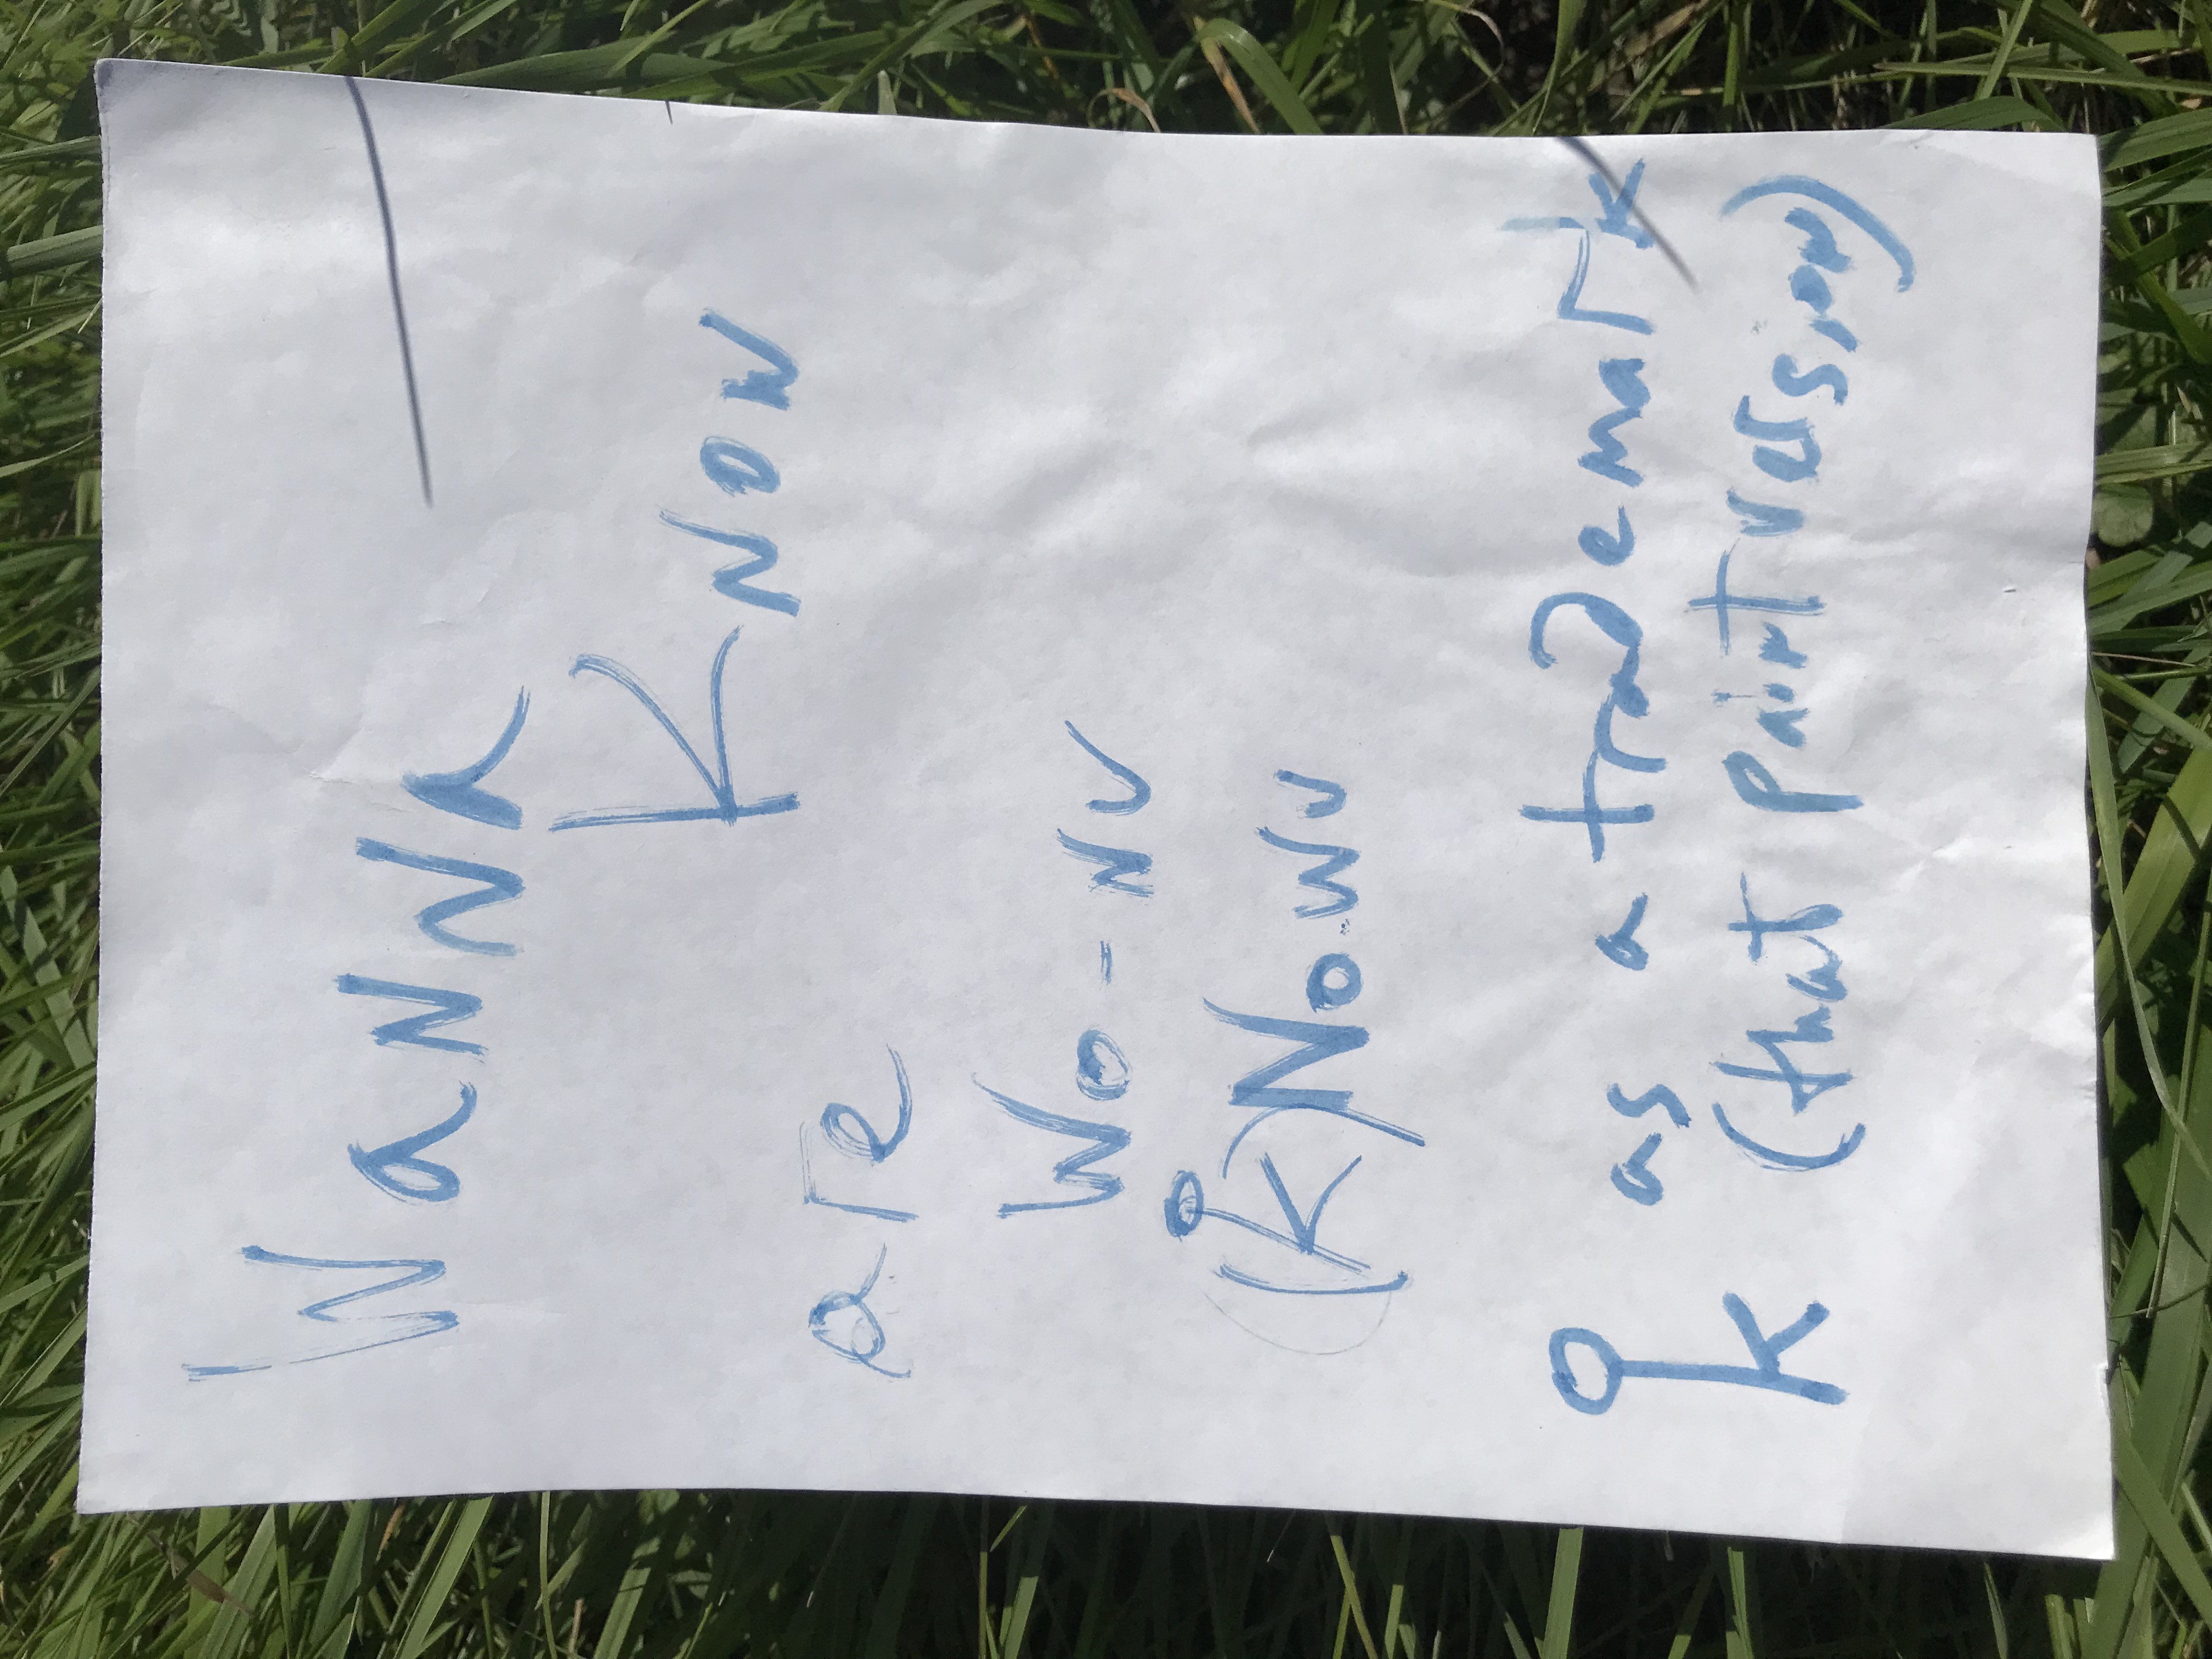 Wanna
Know
are
Wo-nu
(k)No.wu
k as a trademark
(that paint version)